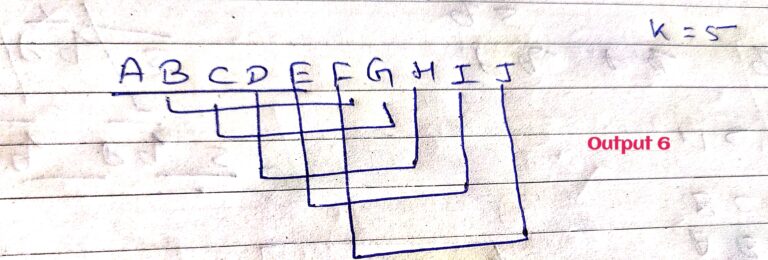 K = 5
A B C D E F G H I J
Output 6